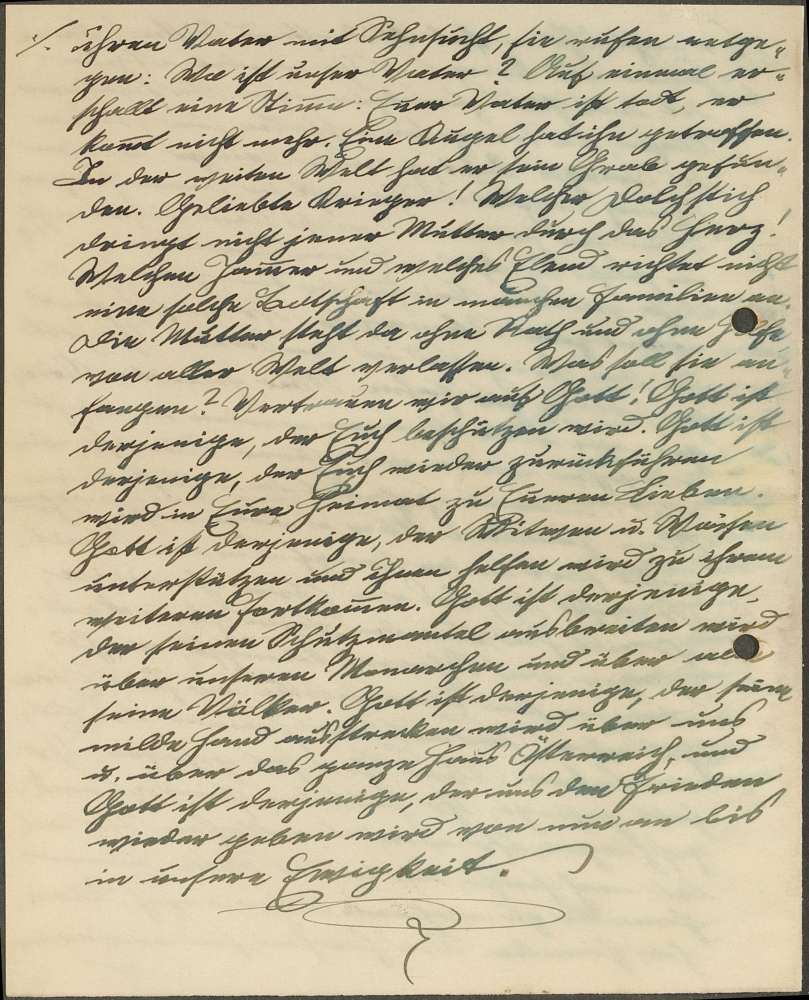 ./. ihren Vater mit Sehnsucht, sie rufen entge-
gen: Wo ist unser Vater? Auf einmal er-
schallt eine Stimme: Euer Vater ist todt, er
kom̄t nicht mehr. Eine Kugel hat ihn getroffen.
In der weiten Welt hat er sein Grab gefun-
den. Geliebte Krieger! Welcher Dolchstich
dringt nicht jener Mutter durch das Herz!
Welchen Jam̄er und welches Elend richtet nicht
eine solche Botschaft in manchen Familien an.
Die Mutter steht da ohne Rath und ohne Hilfe
von aller Welt verlassen. Was soll sie an-
fangen? Vertrauen wir auf Gott! Gott ist
derjenige, der Euch beschützen wird. Gott ist
derjenige, der Euch wieder zurückführen
wird in Eure Heimat zu Eueren Lieben.
Gott ist derjenige, der Witwen u. Waisen
unterstützen und ihnen helfen wird zu ihrem
weiteren Fortkom̄en. Gott ist derjenige,
der seinen Schutzmantel ausbreiten wird
über unseren Monarchen und über alle
seine Völker. Gott ist derjenige, der seine
milde Hand ausstrecken wird über uns
u. über das ganze Haus Österreich, und
Gott ist derjenige, der uns den Frieden
wieder geben wird von nun an bis
in unsere Ewigkeit.